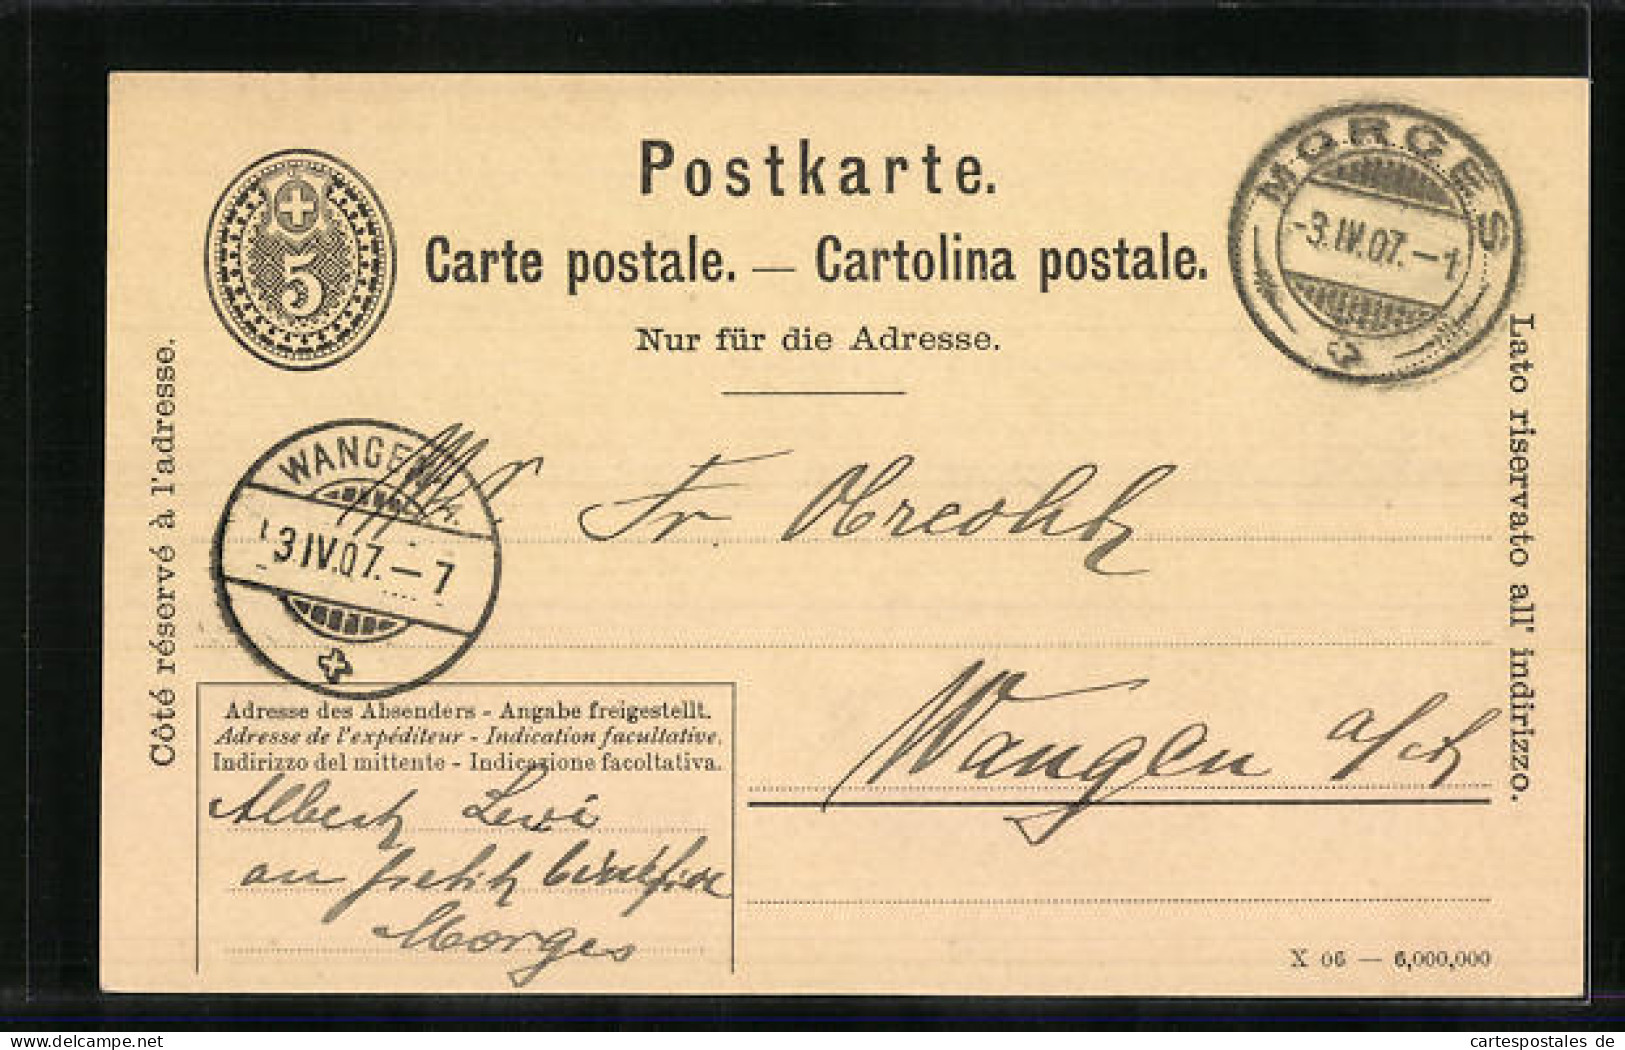 Postkarte.
Carte postale. — Cartolina postale.
Nur für die Adresse.
5
MORGES
-3.IV.07.-1
Côté réservé à l'adresse.
Lato riservato all' indirizzo.
WANGEN
3.IV.07.-7
Fr.
Wangen a/
Adresse des Absenders - Angabe freigestellt.
Adresse de l'expéditeur - Indication facultative.
Indirizzo del mittente - Indicazione facoltativa.
Albert Levi
Morges
X 06 — 6,000,000
www.delcampe.net
cartespostales de